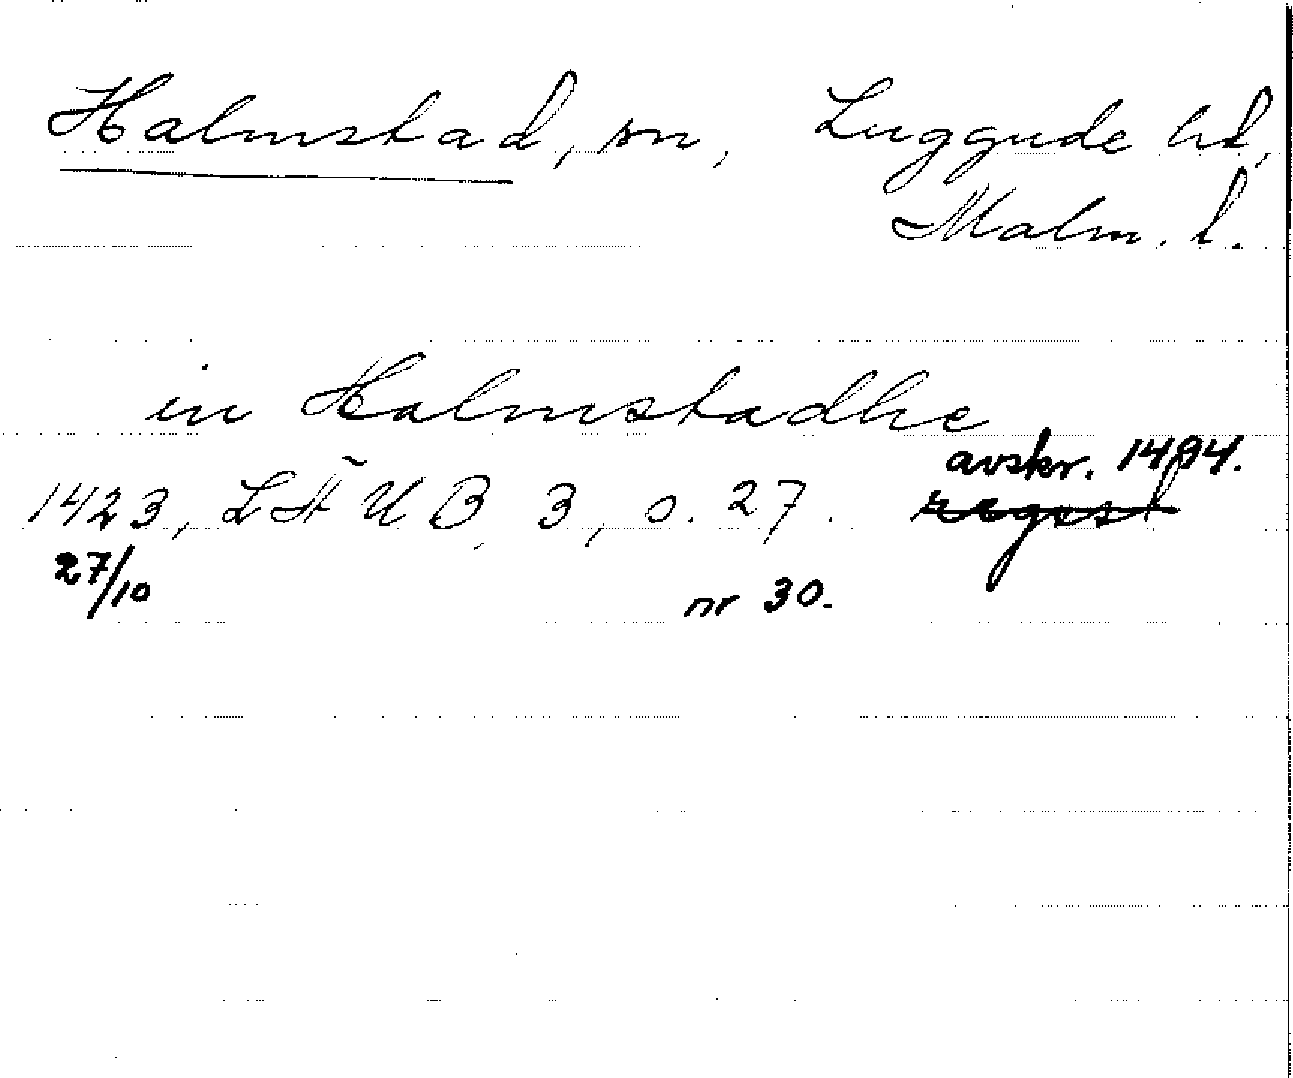 Halmstad, sn, Luggude hd,
Malm. l.
in Halmstadhe
avskr. 1494.
1423, LÄUB 3, s. 27. regest
27/10 nr 30.